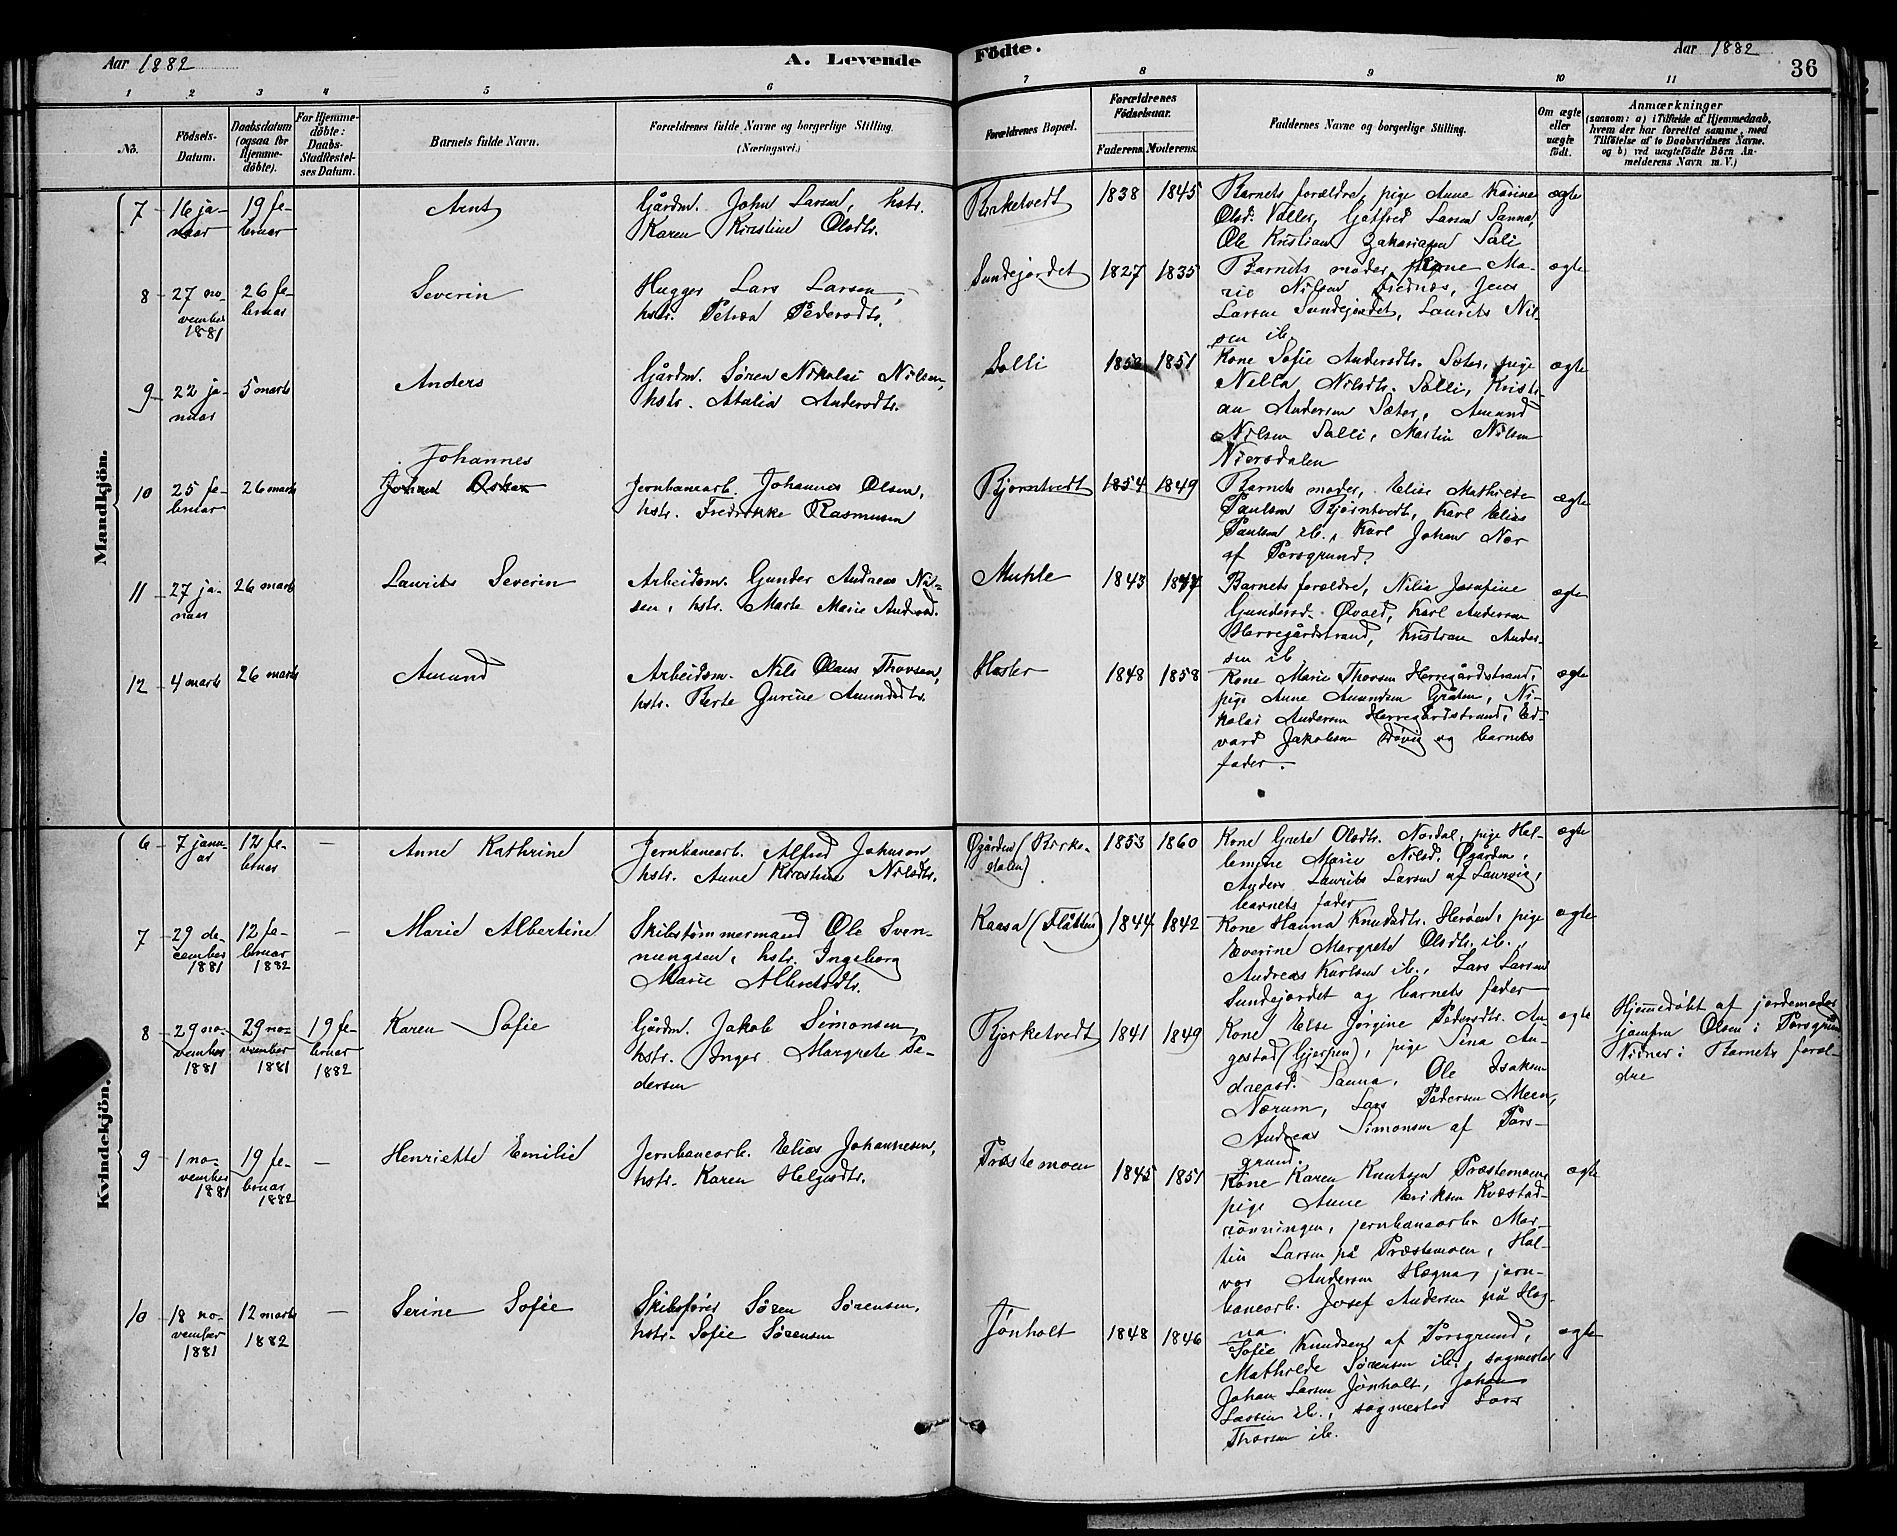 Aar 1882
A. Levende
Födte.
Aar 1882
36
1 2 3 4 5 6 7 8 9 10 11
No.
Födsels-
Datum.
Daabsdatum
(ogsaa for
Hjemme-
döbte).
For Hjemme-
döbte:
Daabs-
Stadfæstel-
ses Datum.
Barnets fulde Navn.
Forældrenes fulde Navne og borgerlige Stilling.
(Næringsvei.)
Forældrenes Bopæl.
Forældrenes
Födselsaar.
Faderens. Moderens.
Faddernes Navne og borgerlige Stilling.
Om ægte
eller
uægte
født.
Anmærkninger
(saasom: a) i Tilfælde af Hjemmedaab,
hvem der har forrettet samme, med
Tilföielse af to Daabsvidners Navne.
og b) ved uægtefödte Börn An-
melderens Navn m. V.)
Mandkjön.
7
16 ja-
nuar
19 fe-
bruar
Arnt
Gårdm. John Larsen, hstr.
Karen Kirstine Olsdtr.
Birketvedt
1838 1845
Barnets forældre, pige Anne Karine
Olsd. Valler, Gotfred Larsen Sanna,
Ole Kristian Zakariasen Sali
ægte
8
27 no-
vember
1881
26 fe-
bruar
Severin
Hugger Lars Larsen,
hstr. Petrea Pedersdtr.
Sundejordet
1827 1835
Barnets moder, kone Ma-
rie Nilsen Trednæs, Jens
Larsen Sundejordet, Laurits Nil-
sen ib.
ægte
9
22 ja-
nuar
5 marts
Anders
Gårdm. Søren Nikolai Nilsen,
hstr. Atalia Andersdtr.
Salli
1852 1851
Kone Sofie Andersdtr. Sæter, pige
Nella Nilsdtr. Salli, Kristi-
an Andersen Sæter, Amund
Nilsen Salli, Martin Nilsen
Niersdalen
ægte
10
25 fe-
bruar
26 marts
Johannes
Johan Oskar
Jernbanearb. Johannes Olsen,
hstr. Fredrikke Rasmusen
Bjørntvedt
1854 1849
Barnets moder, Elise Mathilde
Paulsen Bjørntvedt, Karl Elias
Paulsen ib., Karl Johan Nær
af Porsgrund.
ægte
11
27 ja-
nuar
26 marts
Laurits Severin
Arbeidsm. Gunder Andreas Nil-
sen, hstr. Marte Marie Andersd.
Muhle
1843 1847
Barnets forældre, Nilia Josefine
Gundersd. Øvald, Karl Andersen
Herregårdstrand, Kristian Ander-
sen ib
ægte
12
4 marts
26 marts
Amund
Arbeidsm. Nils Olaus Thovsen,
hstr. Berte Gurine Amundsdtr.
Hasler
1848 1858
Kone Marie Thovsen Herregårdstrand,
pige Anne Amundsen Gråten, Ni-
kolai Andersen Herregårdstrand, Ed-
vard Jakobsen Trøvig og barnets
fader.
ægte
Kvindekjön.
6
7 janu-
ar
12 fe-
bruar
—
Anne Kathrine
Jernbanearb. Alfred Johnson,
hstr. Anne Kirstine Nilsdtr.
Øgården (Birke-
dalen)
1853 1860
Kone Grete Olsdtr. Nordal, pige Hal-
lemine Marie Nilsd. Øgården,
Anders Laurits Larsen af Laurvig,
barnets fader
ægte
7
29 de-
cember
1881
12 fe-
bruar
1882
—
Marie Albertine
Skibstømmermand Ole Sven-
nungsen, hstr. Ingeborg
Marie Albretsdtr.
Kaasa (Flåtten)
1844 1842
Kone Hanna Knudsdtr. Herøen, pige
Everine Margrete Olsdtr. ib.,
Andreas Karlsen ib., Lars Larsen
Sundejordet og barnets fader
ægte
8
29 no-
vember
1881
29 no-
vember
1881
19 fe-
bruar
1882
Karen Sofie
Gårdm. Jakob Simonsen,
hstr. Inger Margrete Pe-
dersen
Bjerketvedt
1841 1849
Kone Else Jørgine Pedersdtr. Au-
gestad (Gjerpen), pige Sina An-
dreasd. Sanna, Ole Isaksen
Nærum, Lars Pedersen Meen,
Andreas Simonsen af Pors-
grund.
ægte
Hjemmedøbt af jordemoder
jomfru Olsen i Porsgrund
Vidner: Barnets foræl-
dre
9
1 no-
vember
1881
19 fe-
bruar
1882
—
Henriette Emilie
Jernbanearb. Elias Johannesen,
hstr. Karen Helgesdtr.
Præstemoen
1845 1851
Kone Karen Knutsen Præstemoen,
pige Anne Eriksen Kvæstad-
rønningen, jernbanearb. Mar-
tin Larsen på Præstemoen, Hal-
vor Andersen Hægna, jern-
banearb. Josef Andersen på Hæg-
na.
ægte
10
18 no-
vember
1881
12 marts
1882
—
Serine Sofie
Skibsfører Søren Sørensen,
hstr. Sofie Sørensen
Jønholt
1848 1846
Sofie Knudsen af Porsgrund,
Mathilde Sørensen ib., sagmester
Johan Larsen Jønholt, Johan
Larsen ib., sagmester Lars
Thorsen ib.
ægte